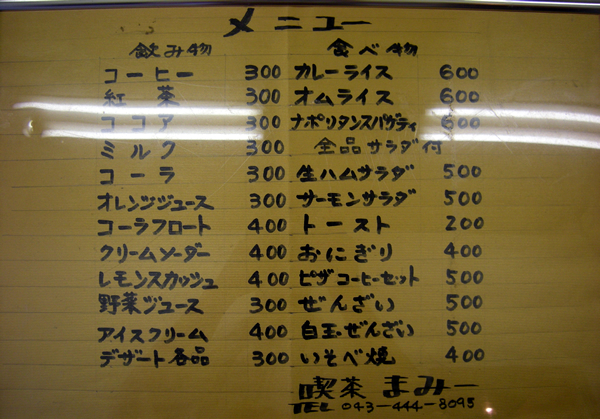 メニュー
飲み物
コーヒー 300
紅茶 300
ココア 300
ミルク 300
コーラ 300
オレンジジュース 300
コーラフロート 400
クリームソーダー 400
レモンスカッシュ 400
野菜ジュース 300
アイスクリーム 400
デザート各品 300
食べ物
カレーライス 600
オムライス 600
ナポリタンスパゲティ 600
全品サラダ付
生ハムサラダ 500
サーモンサラダ 500
トースト 200
おにぎり 400
ピザコーヒーセット 500
ぜんざい 500
白玉ぜんざい 500
いそべ焼 400
喫茶 まみー
TEL 043-444-8095